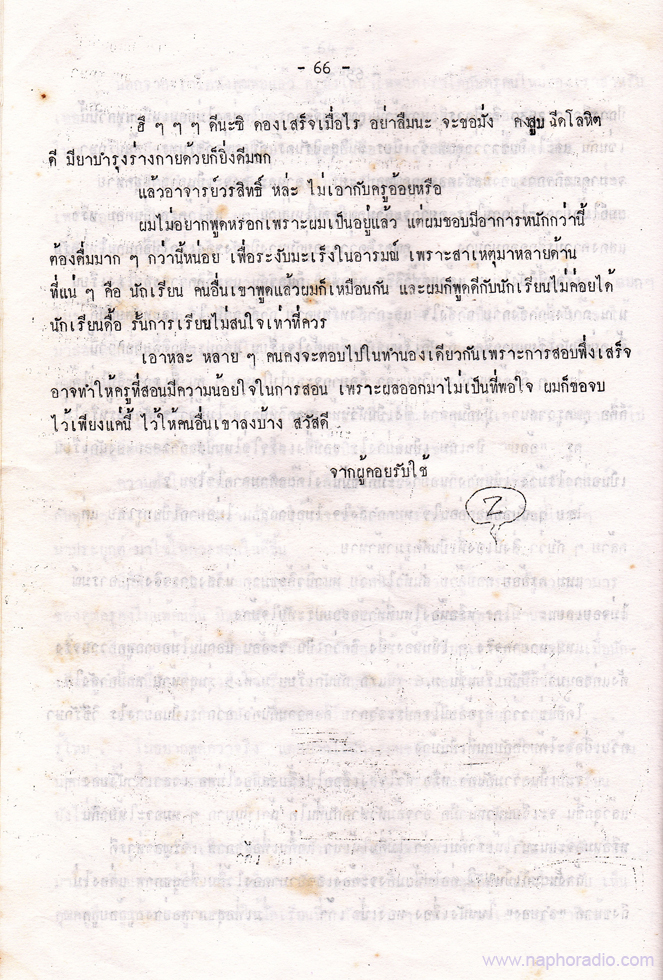 - 66 -
ฮิ ๆ ๆ ๆ ดีนะซิ ดองเสร็จเมื่อไร อย่าลืมนะ จะขอมั่ง คงสูบฉีดโลหิต
ดี มียาบำรุงร่างกายด้วยก็ยิ่งดีมาก
แลวอาจารย์วรสิทธิ์ หล่ะ ไม่เอากับครูอ้อยหรือ
ผมไม่อยากพูดหรอกเพราะผมเป็นอยู่แล้ว แต่ผมชอบมีอาการหนักกว่านี้
ต้องดื่มมาก ๆ กว่านี้หน่อย เพื่อระงับมะเร็งในอารมณ์ เพราะสาเหตุมาหลายด้าน
ที่แน่ ๆ คือ นักเรียน คนอื่นเขาพูดแล้วผมก็เหมือนกัน และผมก็พูดดีกับนักเรียนไม่ค่อยได้
นักเรียนดื้อ รั้นการเรียนไม่สนใจเท่าที่ควร
เอาหละ หลาย ๆ คนคงจะตอบไปในทำนองเดียวกันเพราะการสอบพึ่งเสร็จ
อาจทำให้ครูที่สอนมีความน้อยใจในการสอน เพราะผลออกมาไม่เป็นที่พอใจ ผมก็ขอจบ
ไว้เพียงแค่นี้ ไว้ให้คนอื่นเขาลงบ้าง สวัสดี
จากผู้คอยรับใช้
Z
www.naphoradio.com